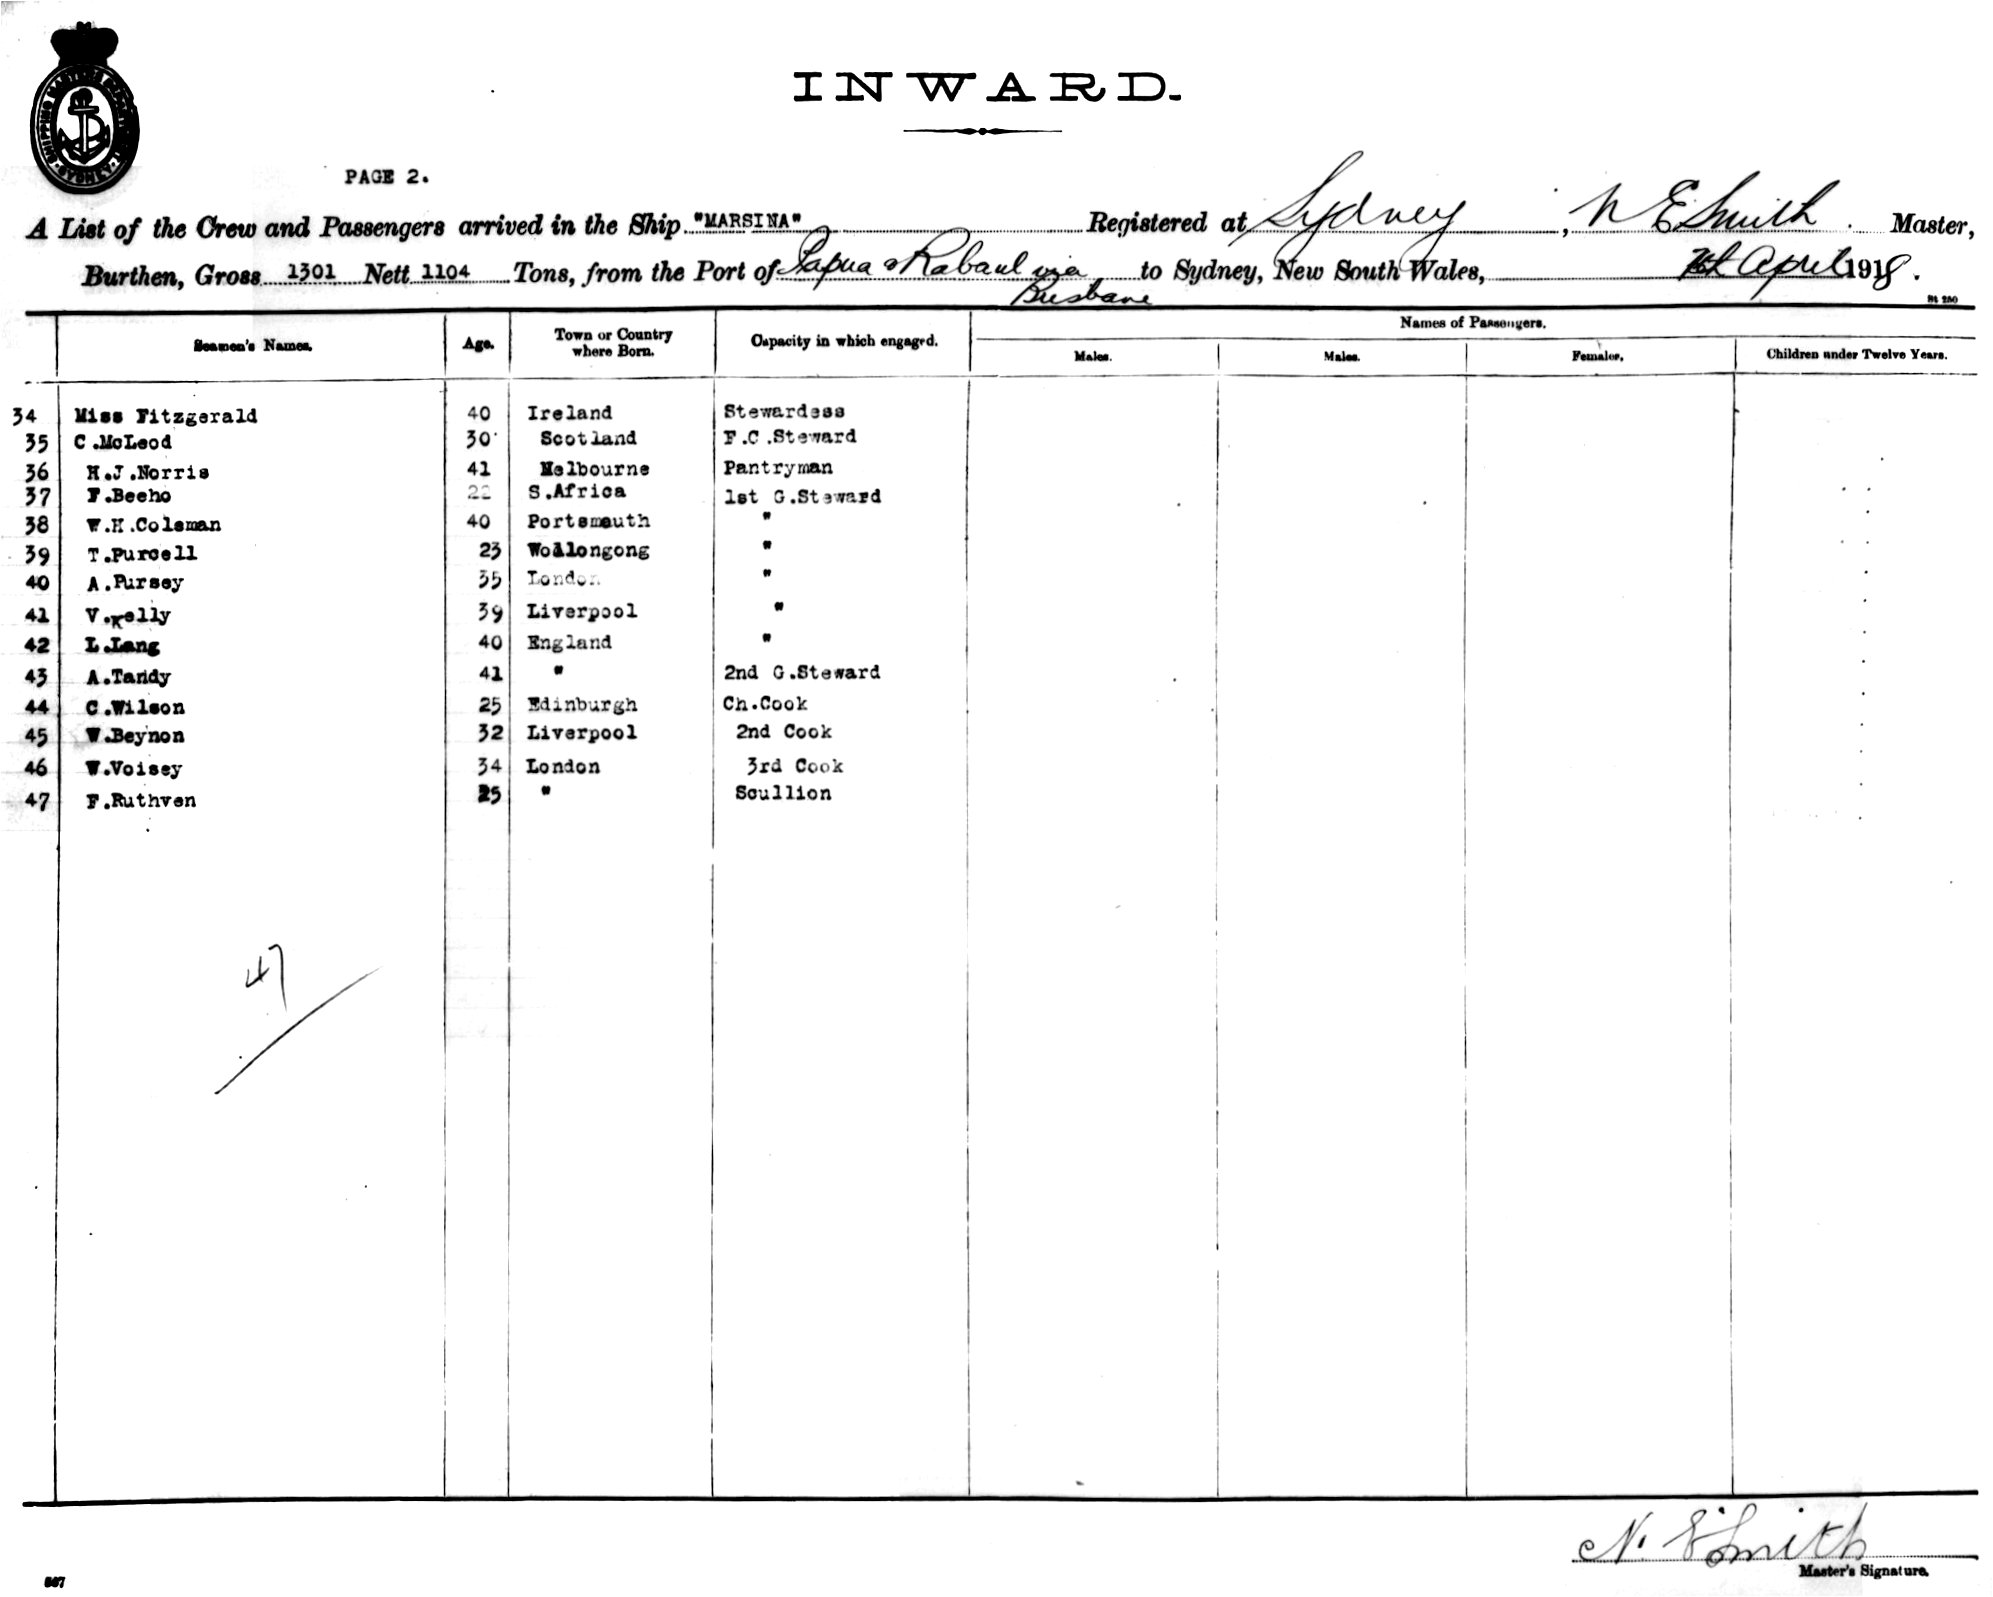 SHIPPING MASTERS DEPARTMENT SYDNEY
INWARD.
PAGE 2.
A List of the Crew and Passengers arrived in the Ship "MARSINA" Registered at Sydney, N E Smith Master,
Burthen, Gross 1301 Nett 1104 Tons, from the Port of Papua & Rabaul via Brisbane to Sydney, New South Wales, April 1918.
Seamen's Names. Age. Town or Country where Born. Capacity in which engaged. Names of Passengers.
Males. Males. Females. Children under Twelve Years.
34 Miss Fitzgerald 40 Ireland Stewardess
35 C.McLeod 30 Scotland F.C.Steward
36 H.J.Norris 41 Melbourne Pantryman
37 F.Beeho 22 S.Africa 1st G.Steward
38 W.H.Coleman 40 Portsmouth "
39 T.Purcell 23 Wollongong "
40 A.Pursey 35 London "
41 V.Kelly 39 Liverpool "
42 L.Lang 40 England "
43 A.Tandy 41 " 2nd G.Steward
44 C.Wilson 25 Edinburgh Ch.Cook
45 W.Beynon 32 Liverpool 2nd Cook
46 W.Voisey 34 London 3rd Cook
47 F.Ruthven 25 " Scullion
47
N. E Smith
Master's Signature.